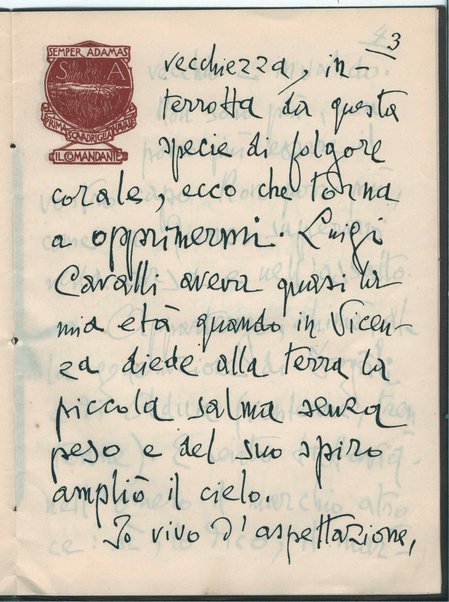 3
SEMPER ADAMAS
S A
PRIMA SQUADRIGLIA NAVALE
IL COMANDANTE
vecchiezza, in-
terrotta da questa
specie di folgore
corale, ecco che torna
a opprimermi. Luigi
Cavalli aveva quasi la
mia età quando in Vicen-
za diede alla terra la
piccola salma senza
peso e del suo spiro
ampliò il cielo.
Io vivo d'aspettazione,